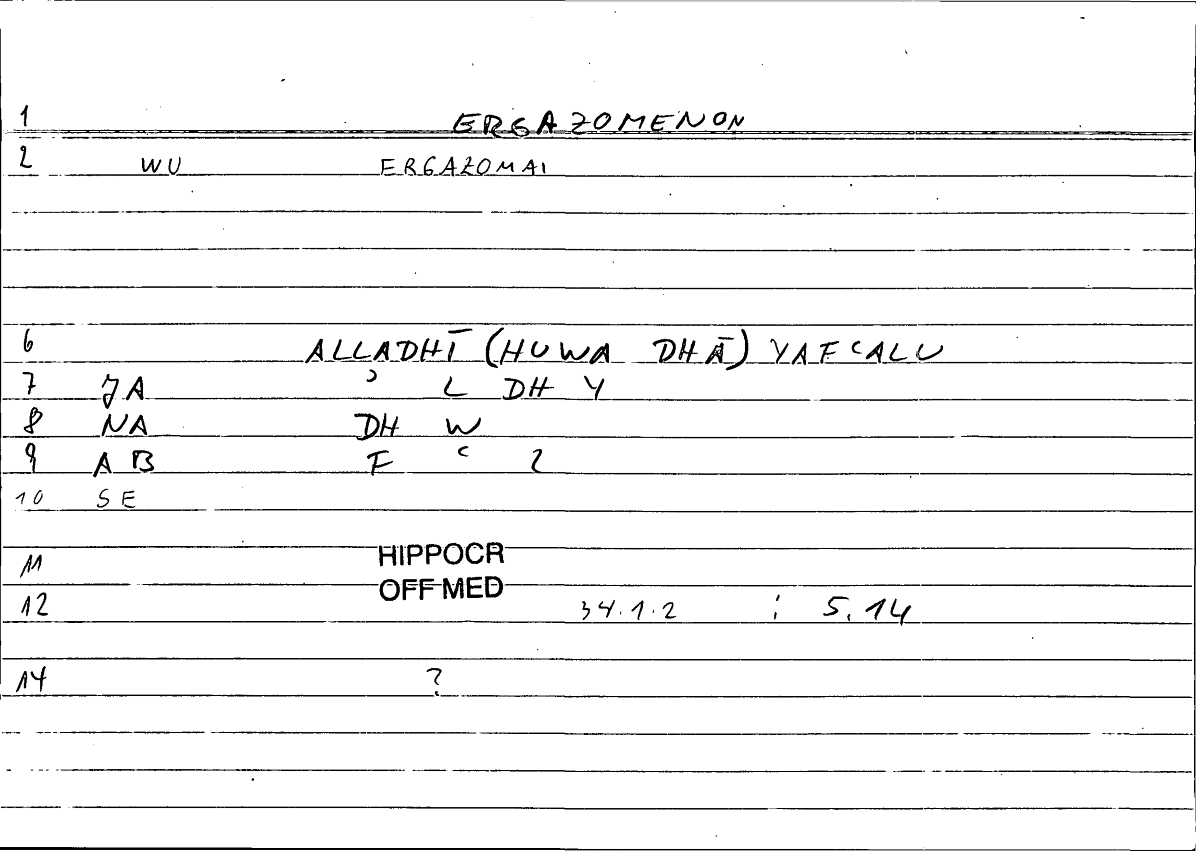 1 ERGAZOMENON
2 WU ERGAZOMAI
6 ALLADHĪ (HUWA DHĀ) YAFCALU
7 JA ʾ L DH Y
8 NA DH W
9 AB F ʿ L
10 SE
11 HIPPOCR
OFF MED
12 34.1.2 ; 5.14
14 ?